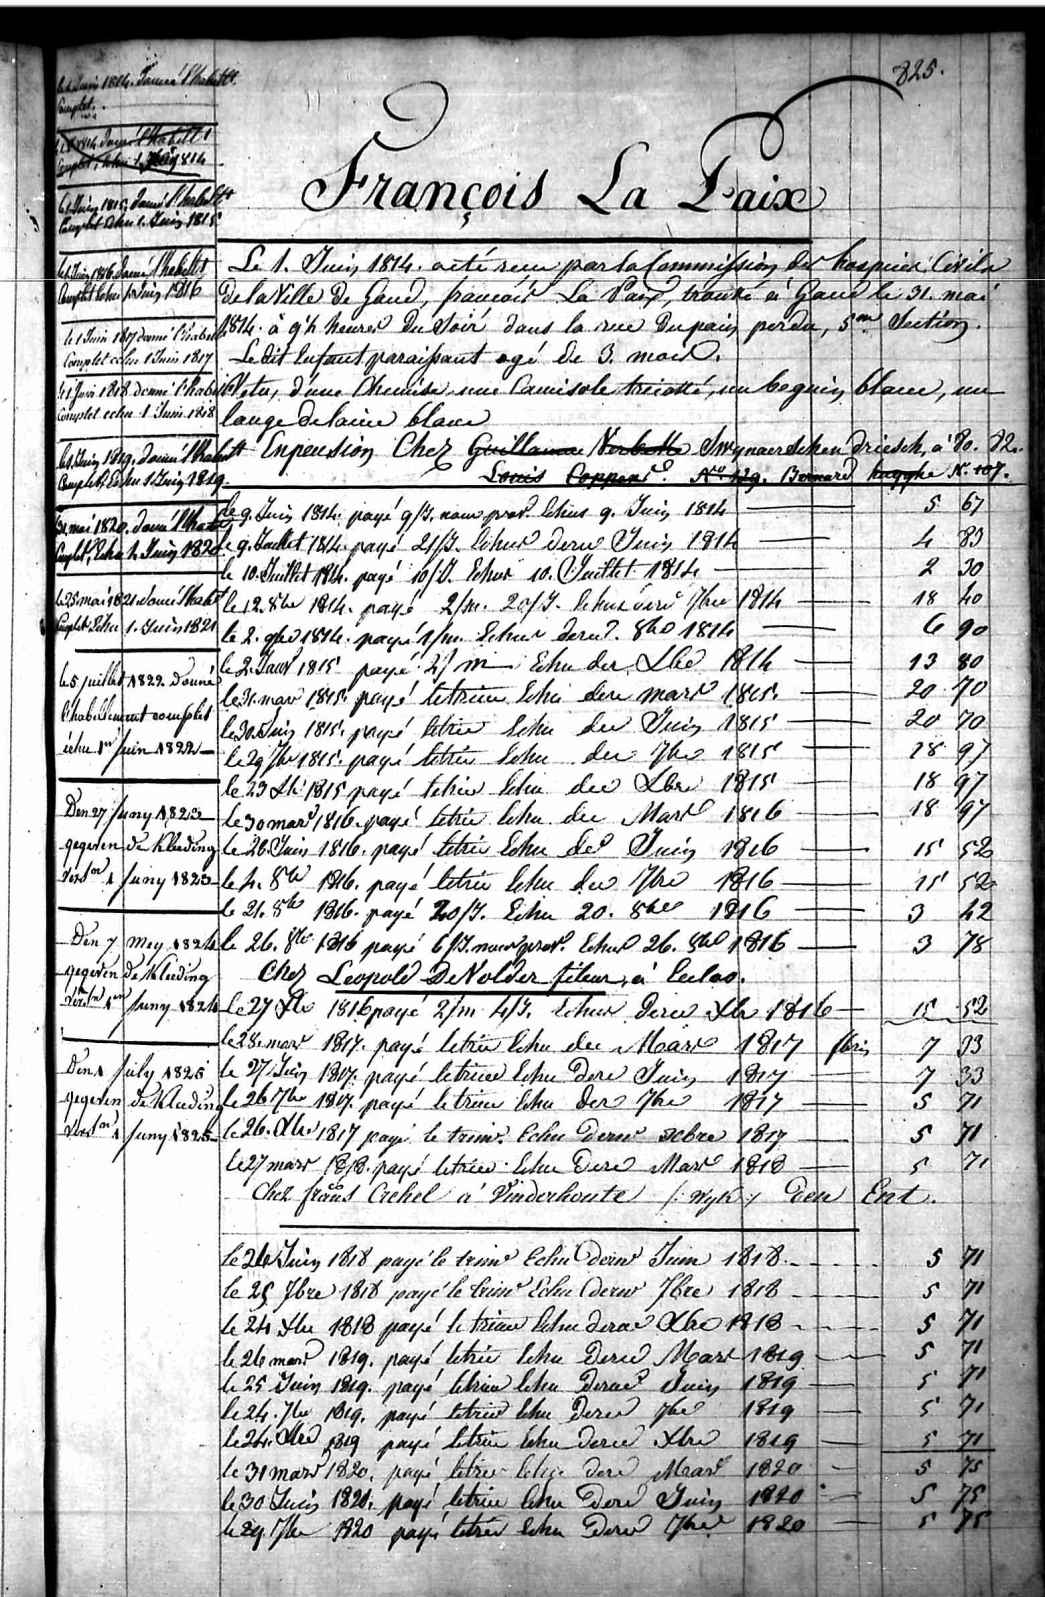 825.
François La Paix
le 1 Juin 1814. donné l'habillt
Complet.
1814 donné l'habillt
Complet, echu 1 Juin 1814
le 1 Juin 1815. donné l'habillt
Complet echu 1. Juin 1815
le 1 Juin 1816. donné l'habillt
Complet echu 1 Juin 1816
le 1 Juin 1817 donné l'habill
Complet echu 1 Juin 1817
le 1 Juin 1818 donné l'habill
Complet echu 1 Juin 1818
le 1 Juin 1819. donné l'habillt
Complet, Echu 1 Juin 1819.
31 mai 1820. donné l'habi
Complet, Echu 1 Juin 1820
le 25 mai 1821 donné l'habil
Complet Echu 1. Juin 1821
le 5 juillet 1822 donné
l'habillement complet
échu 1er Juin 1822
Den 27 Juny 1823
gegeven de kleeding
verstn 1 Juny 1823
Den 7 mey 1824
gegeven de kleeding
verstn 1en Juny 1824
Den 1 July 1825
gegeven de kleeding
verstn 1 Juny 1825
Le 1. Juin 1814. a été recu par la Commission des hospices Civils
de la Ville de Gand, francois La Paix, trouvé à Gand le 31. mai
1814. à 9½ heures du Soir dans la rue du pain perdu, 5me Section.
Le dit Enfant paraissant agé de 3. mois.
Vetu, d'une Chemise, une Camisole tricotté, un beguin blanc, un
lange de laine blanc
En pension Chez Guillaume Verbeke Swynaerschen driesch, à 80. 82.
Louis Coppens. No 129. Bernard hugghe N. 107.
le 9. Juin 1814. payé 9/J. nour prov. Echus 9. Juin 1814 5 67
le 9. Juillet 1814. payé 21/J. Echus dere Juin 1814 4 83
le 10. Juillet 1814. payé 10/J. Echus 10. Juillet 1814 2 30
le 12. 8bre 1814. payé 2/m. 20/J. Echus dere 7bre 1814 18 40
le 2. 9bre 1814. payé 1/m. Echus dere. 8bre 1814 6 90
le 2. Janr 1815 payé 2/m Echu der Xbre 1814 13 80
le 31. mars 1815. payé letrime Echu dere mars 1815. 20 70
le 30. Juin 1815. payé letrie Echu der Juin 1815 20 70
le 29 7bre 1815. payé letrie Echu der 7bre 1815 18 97
le 23 Xbre 1815 payé letrie Echu der Xbre 1815 18 97
le 30 mars 1816. payé letrie Echu der Mars 1816 18 97
le 26. Juin 1816. payé letrie Echu der Juin 1816 15 52
le 4. 8bre 1816. payé letrie Echu der 7bre 1816 15 52
le 21. 8bre 1816. payé 20/J. Echu 20. 8bre 1816 3 42
le 26. 8bre 1816 payé 6/J. nour prov. Echus 26. 8bre 1816 3 78
Chez Leopold De Nolder fileur, à Eecloo.
le 27 Xbre 1816 payé 2/m 4/J. Echus Dere Xbr 1816 15 52
le 28. mars 1817. payé letrie Echu der Mars 1817 florin 7 33
le 27 Juin 1817. payé letrime Echu Dere Juin 1817 7 33
le 26 7bre 1817. payé letrime Echu der 7bre 1817 5 71
le 26. Xbre 1817 payé le trimr Echu dernr xcbre 1817 5 71
le 27 mars 1818. payé letrie Echu Dere Mars 1818 5 71
Chez frans Crehel à Vinderhoute (: wyk :) Den Ent.
le 26 Juin 1818 payé le trimr Echu dernr Juin 1818 5 71
le 25 7bre 1818 payé le trimr Echu dernr 7bre 1818 5 71
le 24 Xbre 1818 payé le trimr Echu derne Xbre 1818 5 71
le 26 mars 1819. payé letrie Echu Dere Mars 1819 5 71
le 25 Juin 1819. payé letrime Echu Derne Juin 1819 5 71
le 24. 7bre 1819. payé letrie Echu Dere 7bre 1819 5 71
le 24. Xbre 1819 payé letrie Echu dere Xbre 1819 5 71
le 31 mars 1820. payé letrie Echu dere Mars 1820 5 75
le 30 Juin 1820. payé letrie Echu Dere Juin 1820 5 75
le 29. 7bre 1820 payé letrie Echu Dere 7bre 1820 5 75